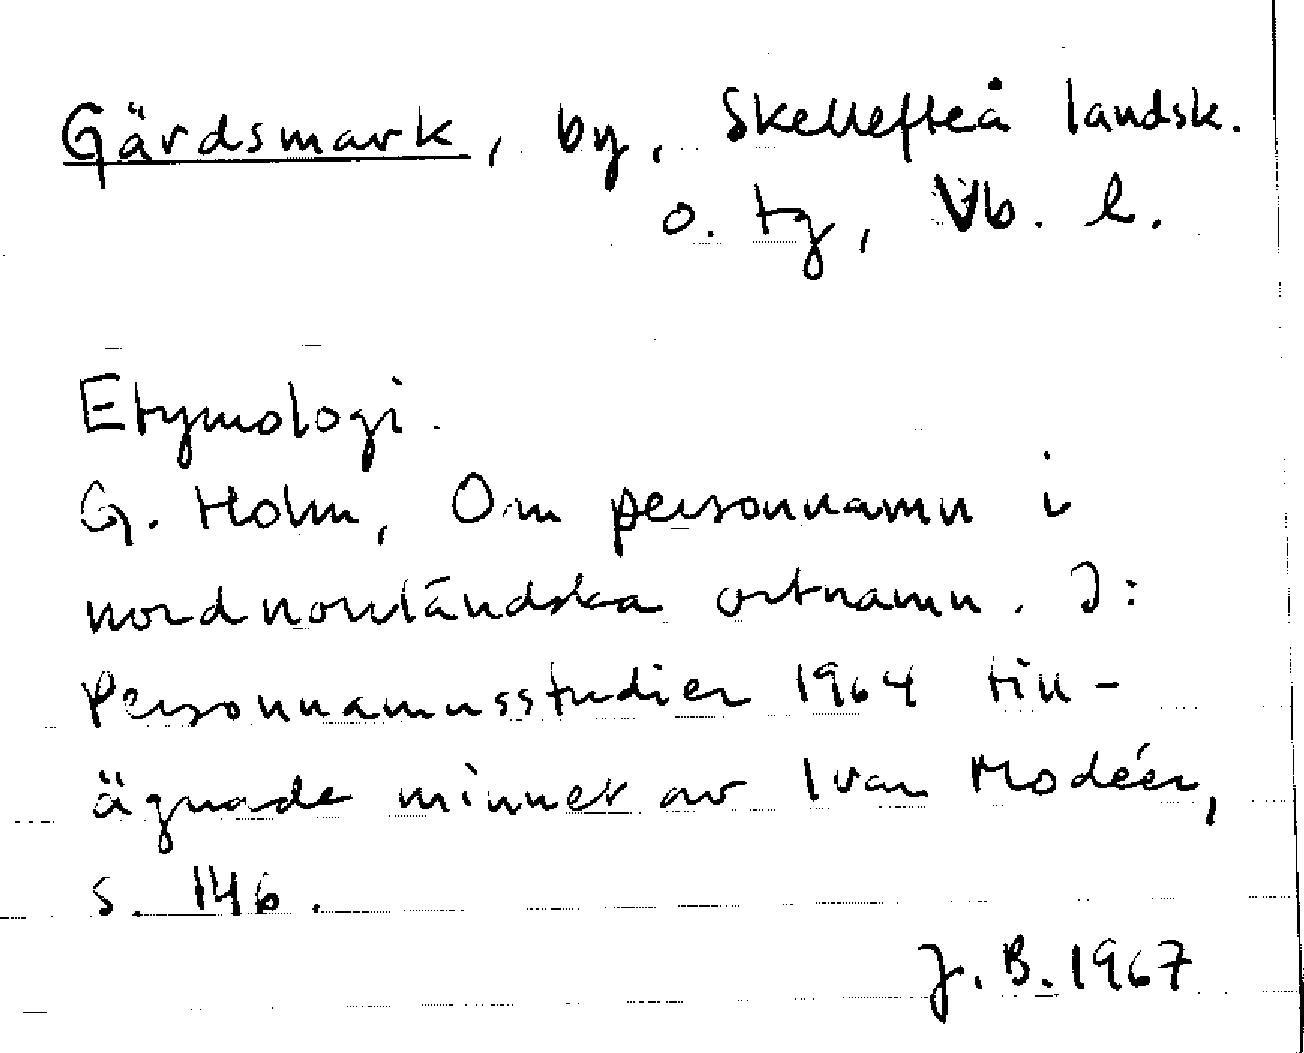 Gärdsmark, by, Skellefteå landsk.
o. tg, Vb. l.
Etymologi.
G. Holm, Om personnamn i
nordnorrländska ortnamn. I:
Personnamnsstudier 1964 till-
ägnade minnet av Ivar Modéer,
s. 146.
J. B. 1967